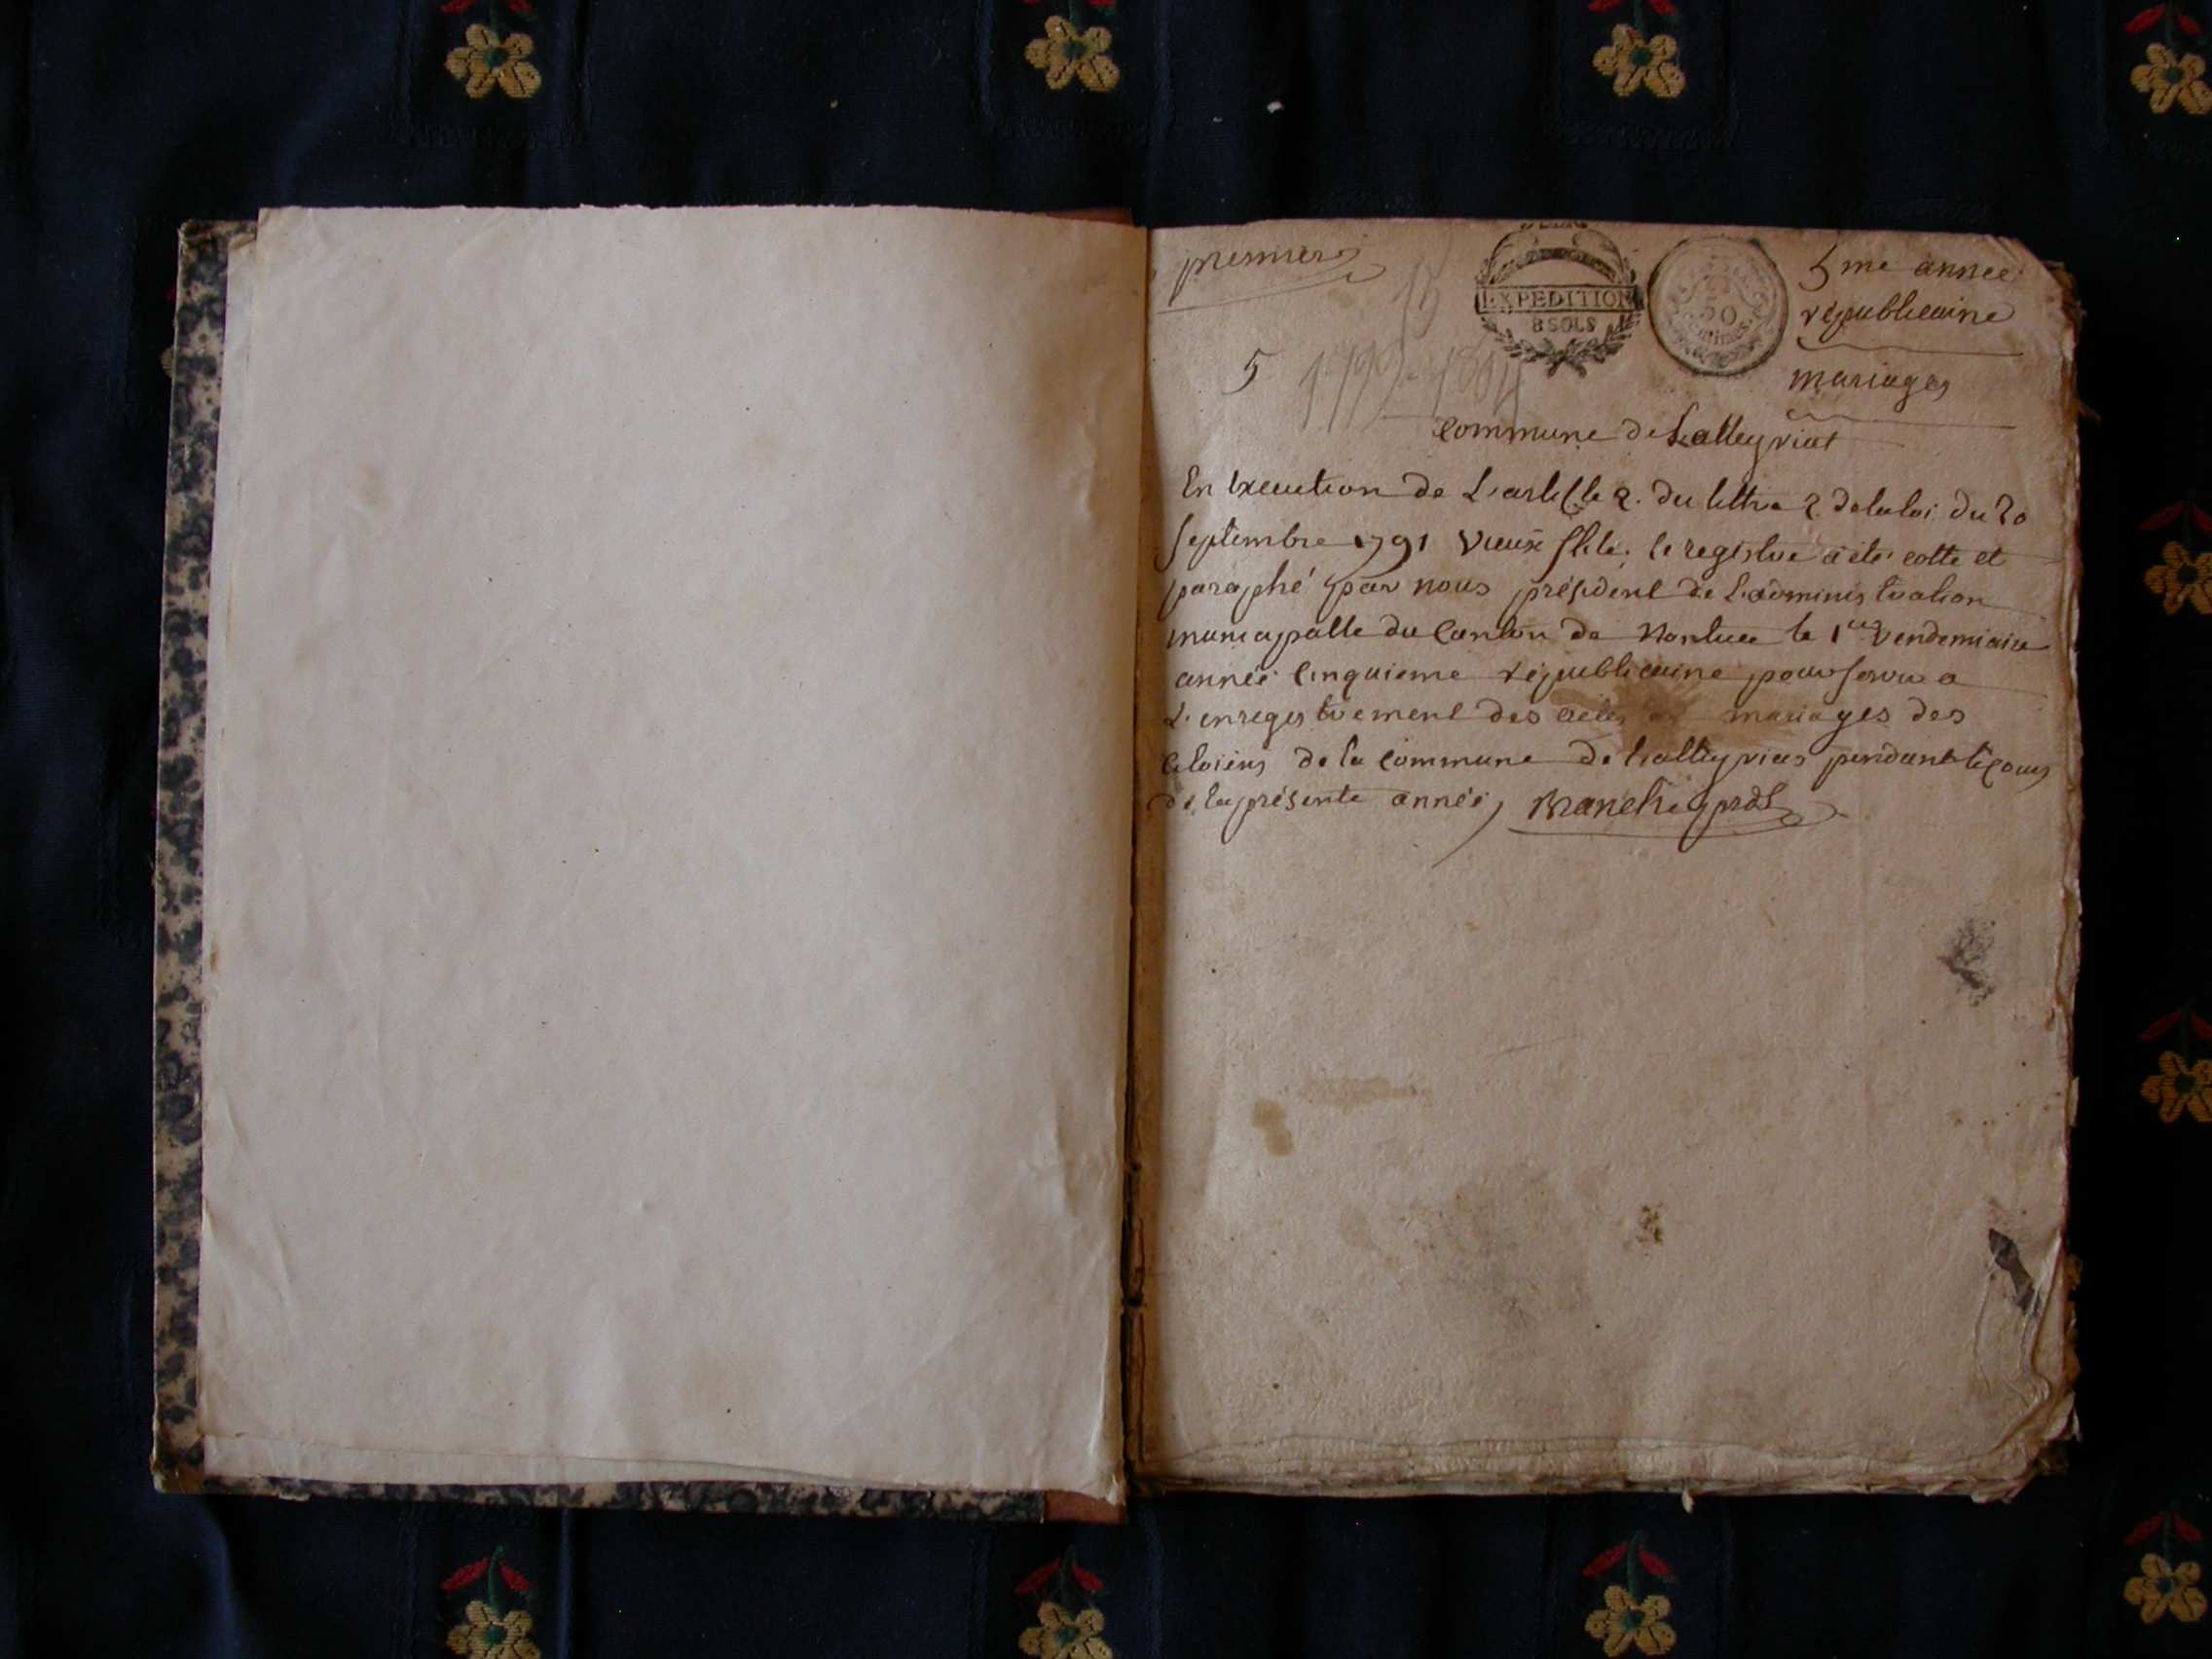 premier
EXPEDITION
8 SOLS
50
5me année
républicaine
mariages
5
1793-1804
Commune de Lalleyriat
En Execution de L'article 2. du littre 2 de la loi du 20
Septembre 1791 vieux stile, le registre a été cotté et
paraphé par nous président de L'administration
municipalle du Canton de Nantua le 1er vendemiaire
année cinquieme républicaine pour servir a
L'enregistrement des actes mariages des
citoiens de la commune de Lalleyriat pendant le cours
de la présente année,